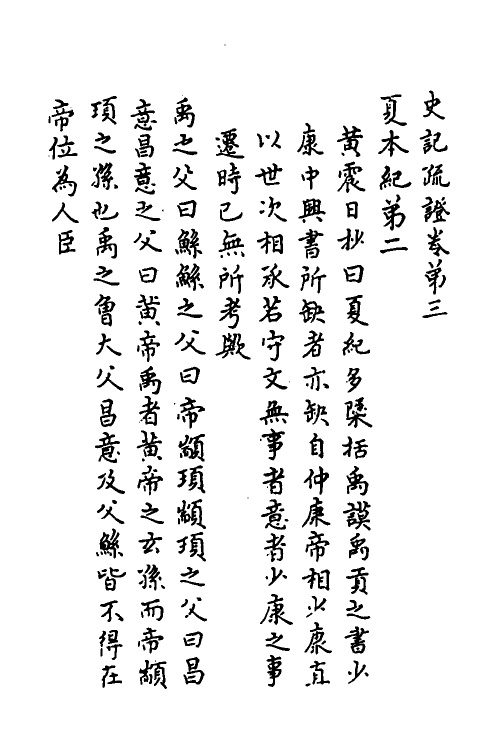 史記疏證卷第三
夏本紀第二
黃震日抄曰夏紀多櫽括禹謨禹貢之書少
康中興書所缺者亦缺自仲康帝相少康直
以世次相承若守文無事者意者少康之事
遷時已無所考歟
禹之父曰鯀鯀之父曰帝顓頊顓頊之父曰昌
意昌意之父曰黃帝禹者黃帝之玄孫而帝顓
頊之孫也禹之曾大父昌意及父鯀皆不得在
帝位為人臣